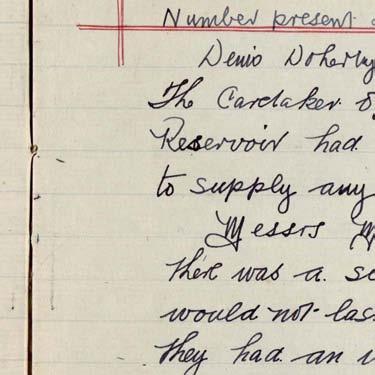 Number present
Denis Doherty
The Caretaker
Reservoir had
to supply any
Messrs
there was a
would not las
they had an